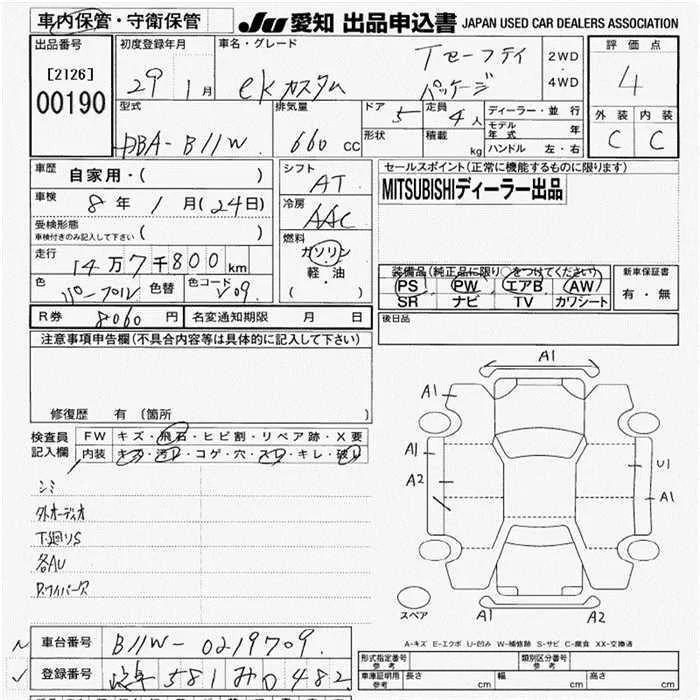 車内保管・守衛保管
JU 愛知 出品申込書 JAPAN USED CAR DEALERS ASSOCIATION
出品番号
[2126]
00190
初度登録年月
29 1月
車名・グレード
eKカスタム
Tセーフティ
パッケージ
2WD
・
4WD
評価点
4
外装 内装
C C
型式
DBA-B11W
排気量
660 cc
ドア
5
形状
定員
4人
積載
kg
ディーラー・並行
モデル年式 年
ハンドル 左・右
車歴
自家用・( )
車検
8年 1月(24日)
受検形態
車検付きのみ記入して下さい ( )
走行
14万7千800km
色
パープル
色替
色コード
シフト
AT
冷房
AAC
燃料
ガソリン
・
軽・油
( )
セールスポイント(正常に機能するものに限ります)
MITSUBISHIディーラー出品
装備品(純正品に限り○をつけてください)
PS PW エアB AW
SR ナビ TV カワシート
新車保証書
有・無
後日品
R券 8060円
名変通知期限 月 日
注意事項申告欄(不具合内容等は具体的に記入して下さい)
修復歴 有 (箇所 )
検査員
記入欄
FW キズ・飛石・ヒビ割・リペア跡・X要
内装 キズ・汚レ・コゲ・穴・スレ・キレ・破レ
シミ
外オーディオ
下廻りS
各AU
R.ワイパー欠
A1
A1
A1
A2
U1
A1
A1
A2
スペア
A-キズ E-エクボ U-凹み W-補修跡 S-サビ C-腐食 XX-交換済
車台番号 B11W-0219709
登録番号 岐阜581み0482
形式指定番号
参考
類別区分番号
参考
車庫証明用
参考
長さ cm
幅 cm
高さ cm